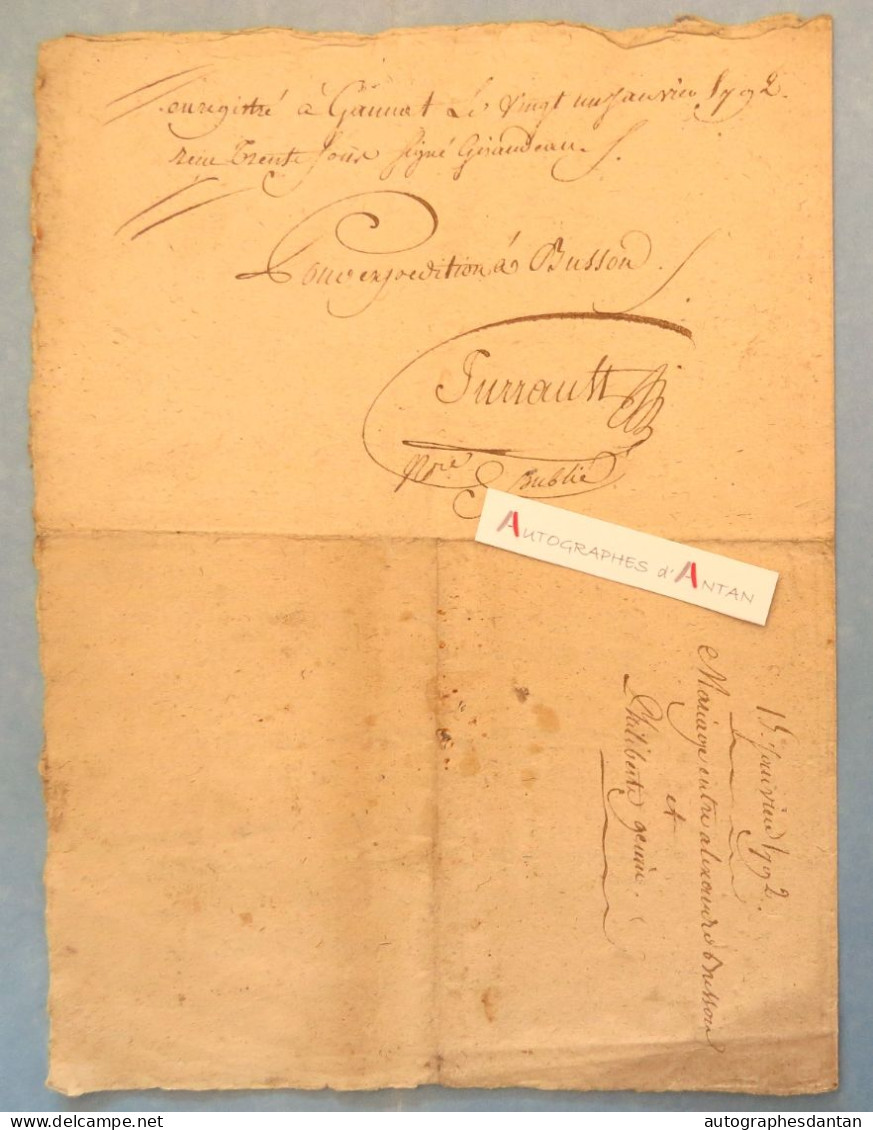 enregistré à Gannat Le vingt un janvier 1792.
reçu trente sous signé Giraudeau.
Pour expedition à Busson
Turrault
Nore Public
AUTOGRAPHES d'ANTAN
15. janvier 1792.
Mariage entre alexandre Busson
et
Philiberte genin.
delcampe.net
autographesdantan